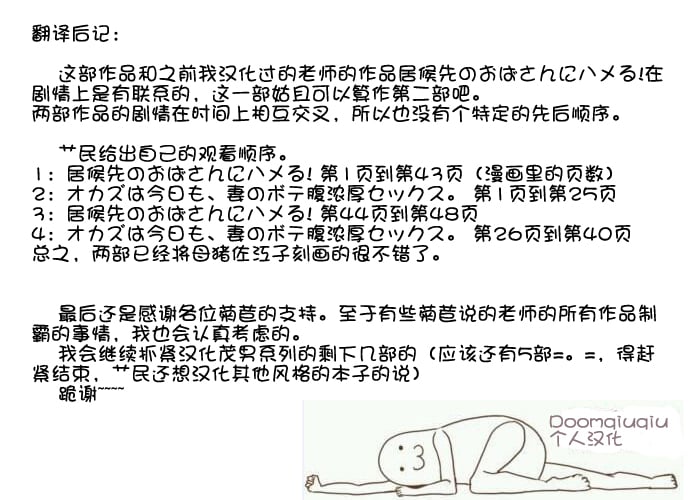 翻译后记：
这部作品和之前我汉化过的老师的作品居候先のおばさんにハメる!在
剧情上是有联系的，这一部姑且可以算作第二部吧。
两部作品的剧情在时间上相互交叉，所以也没有个特定的先后顺序。
艹民给出自己的观看顺序。
1：居候先のおばさんにハメる! 第1页到第43页（漫画里的页数）
2：オカズは今日も、妻のボテ腹浓厚セックス。 第1页到第25页
3：居候先のおばさんにハメる! 第44页到第48页
4：オカズは今日も、妻のボテ腹浓厚セックス。 第26页到第40页
总之，两部已经将母猪佐江子刻画的很不错了。
最后还是感谢各位菊苣的支持。至于有些菊苣说的老师的所有作品制
霸的事情，我也会认真考虑的。
我会继续抓紧汉化茂男系列的剩下几部的（应该还有5部=。=，得赶
紧结束，艹民还想汉化其他风格的本子的说）
跪谢~~~~
Doomqiuqiu
个人汉化